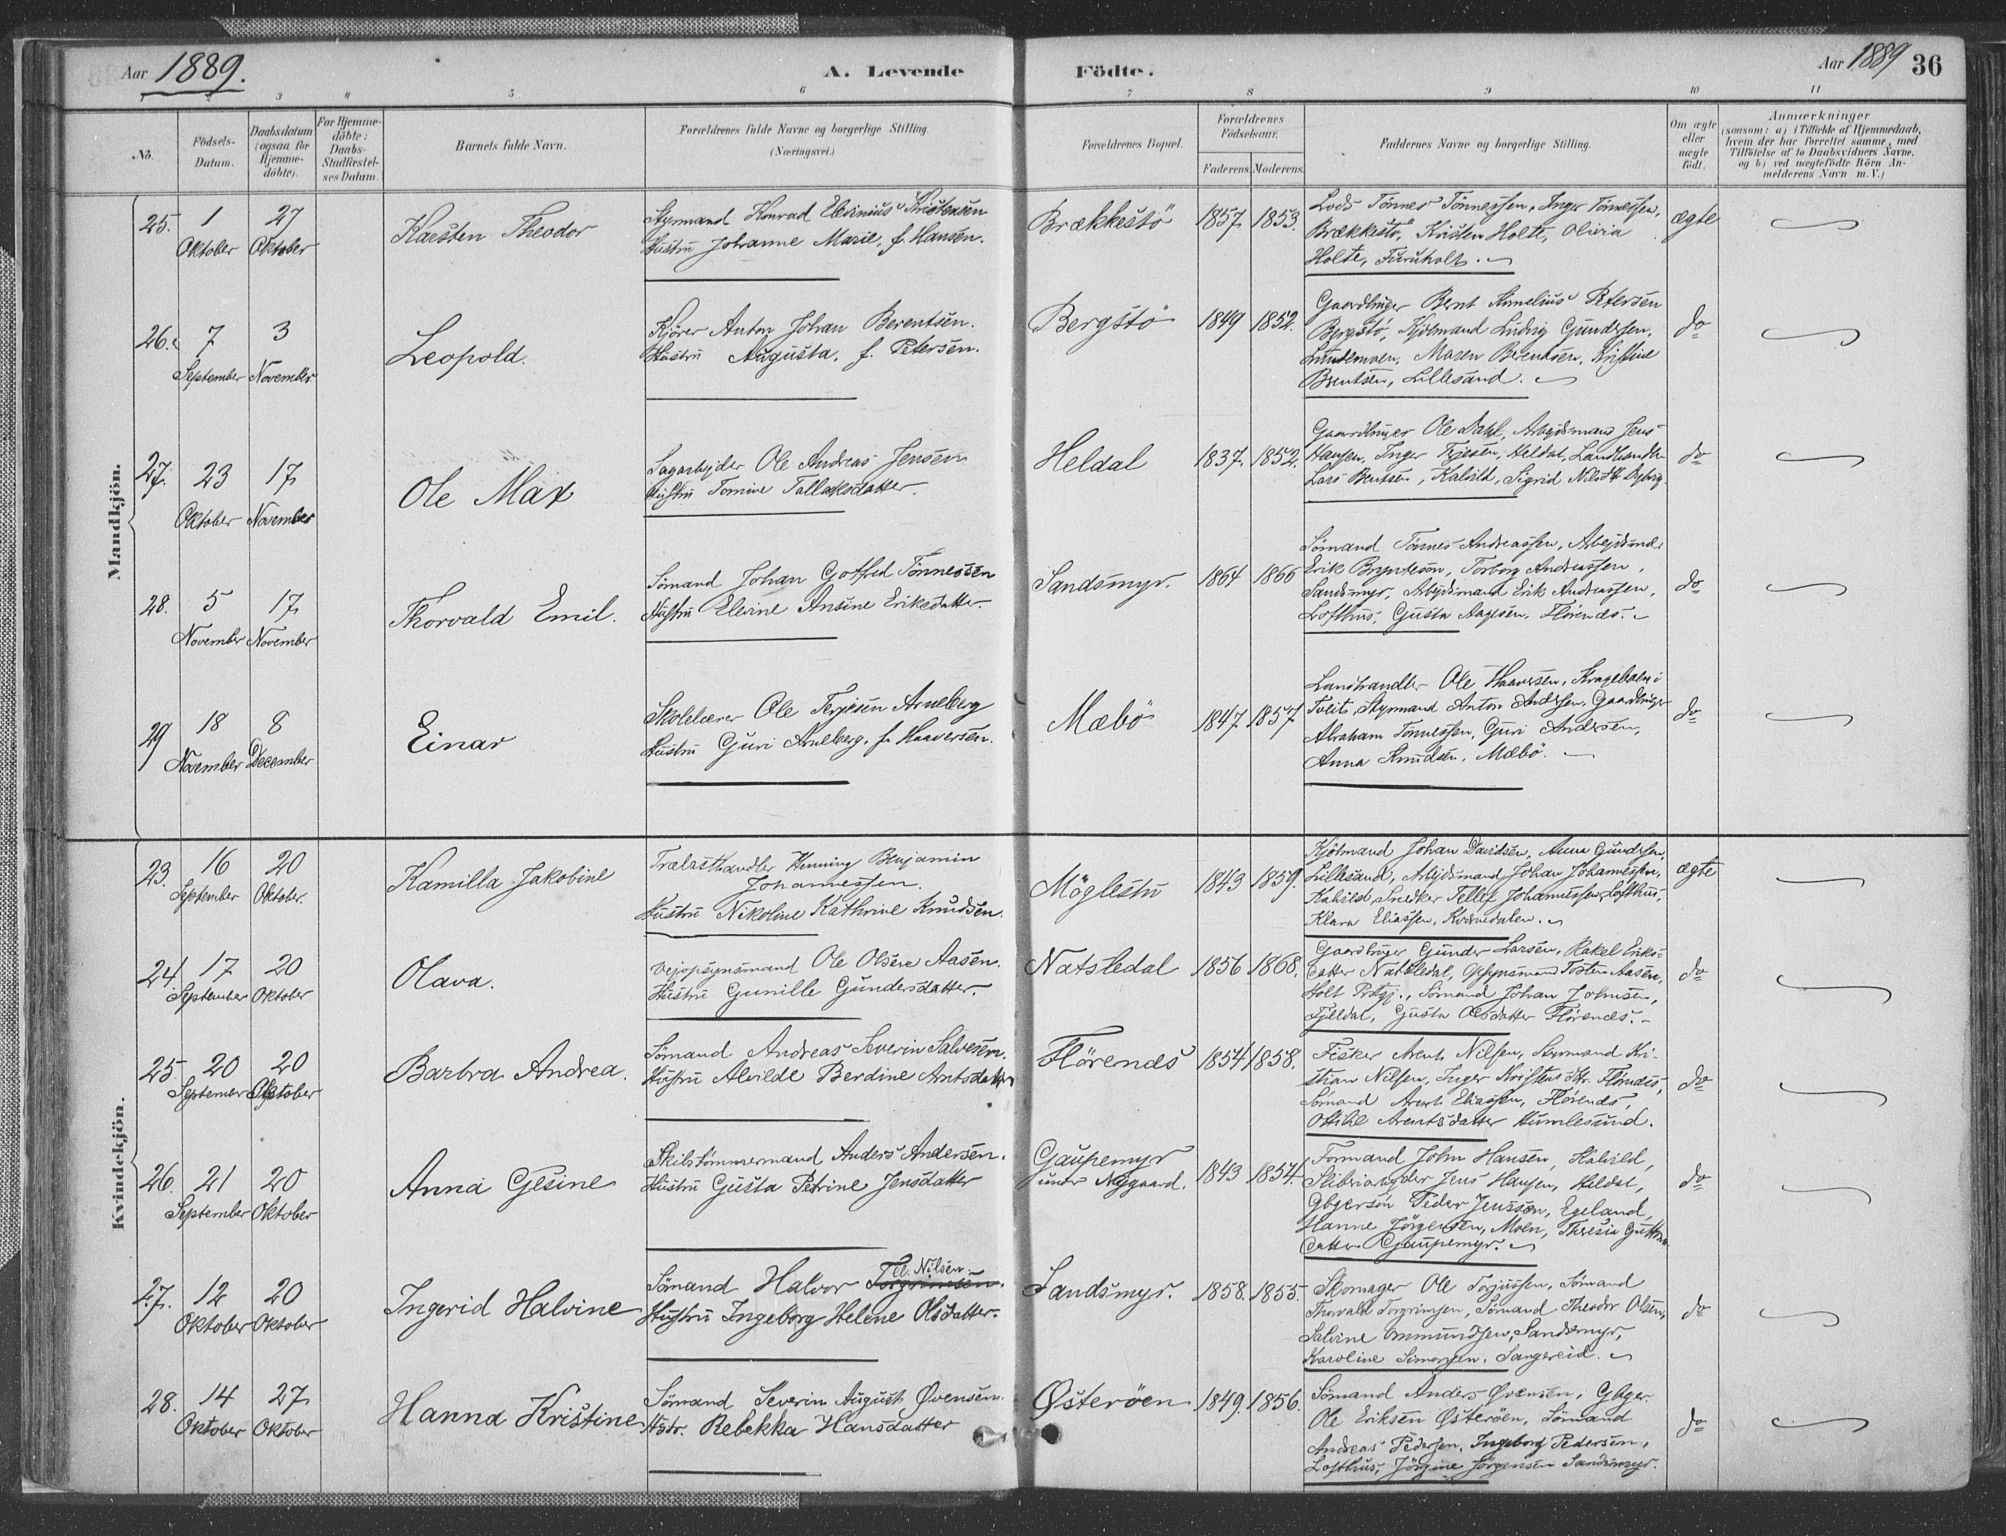 Aar 1889.
A. Levende
Födte.
Aar 1889
36
1 2 3 4 5 6 7 8 9 10 11
No.
Födsels-Datum.
Daabsdatum (ogsaa for Hjemme-döbte).
For Hjemme-döbte: Daabs-Stadfæstel-ses Datum.
Barnets fulde Navn.
Forældrenes fulde Navne og borgerlige Stilling. (Næringsvei.)
Forældrenes Bopæl.
Forældrenes Födselsaar.
Faderens. Moderens.
Faddernes Navne og borgerlige Stilling.
Om ægte eller uægte födt.
Anmærkninger
(saasom: a) i Tilfælde af Hjemmedaab,
hvem der har forrettet samme, med
Tilföielse af to Daabsvidners Navne,
og b) ved uægtefödte Börn An-
melderens Navn m. V.)
Mandkjön.
25. 1 Oktober 27 Oktober
Karsten Theodor
Styrmand Konrad Elevinius Kristensen
Hustru Johanne Marie, f. Hansen.
Brækkestö 1857 1853.
Lods Tönnes Tönnessen, Inger Tönnessen,
Brækkestö, Kristen Holte, Olivia
Holte, Furuholt.
ægte
26. 7 September 3 November
Leopold.
Kjörer Anton Johan Berentsen.
Hustru Augusta, f. Petersen.
Bergstö 1849 1852.
Gaardbruger Bernt Kornelius Petersen
Bergstö, Kjölmand Ludvig Gundersen,
Maren Berentsen, Kristine
Berntsen, Lillesand.
do
27. 23 Oktober 17 November
Ole Max
Sagarbejder Ole Andreas Jensen
Hustru Tomine Tallaksdatter.
Heldal 1837. 1852.
Gaardbruger Ole Dahl, Arbejdsmand Jens
Hansen, Inger Heldal, Landhandler
Lars Berntsen, Kalvild, Sigrid
do
28. 5 November 17 November
Thorvald Emil.
Sömand Johan Gotfred Tönnessen
Hustru Elevine Ansine Eriksdatter.
Sandsmyr. 1864 1866
Sömand Tönnes Andreassen, Arbejdsmd.
Erik Bryntesön, Torborg Andreassen,
Sandsmyr, Arbejdsmand Erik Andreassen,
Lofthus, Gusta Aagesen, Flörenes.
do
29 18 November 8 December
Einar
Skolelærer Ole Terjesen Arneberg
Hustru Guri Arneberg, f. Haaversen.
Mæbö 1847. 1857
Landhandler Ole Haaversen, Krageboen i
Tveit, Styrmand Anton Andersen, Gaardbruger
Abraham Tönnessen, Guri Andersen,
Anna Knudsen, Mæbö.
do
Kvindekjön.
23. 16 September 20 Oktober.
Kamilla Jakobine
Trælasthandler Henning Benjamin
Johannessen.
Hustru Nikoline Kathrine Knudsen.
Möglestu 1843 1859.
Kjölmand Johan Davidsen, Anna Gundersen,
Lillesand, Arbejdsmand Johan Johannessen,
Kalvild, Snedker Tellef Johannessen, Lofthus,
Klara Eliassen, Kvernedalen.
ægte
24. 17 September 20 Oktober
Olava.
Vejopsynsmand Ole Olsen Aasen.
Hustru Gunille Gundersdatter.
Natsledal 1856 1868.
Gaardbruger Gunder Larsen, Rakel Eriks-
datter Natsledal, Opsynsmand Tosten Aasen,
Holt Prstgj., Sömand Johan Johnsen,
Fjelldal, Gusta Olsdatter Flörenes.
do
25 20 September 20 Oktober
Barbra Andrea.
Sömand Andreas Severin Salvesen.
Hustru Alvilde Berdine Arntsdatter
Flörenæs 1854 1858.
Fisker Arent Nilsen, Styrmand Kri-
stian Nilsen, Inger Kristensdtr. Flörenes,
Sömand Arent Eliassen, Flörenes,
Otthile Arentsdatter Humlesund.
do
26. 21 September 20 Oktober
Anna Gesine
Skibstömmermand Anders Andersen.
Hustru Gusta Petrine Jensdatter
Gaupemyr
under Nygaard. 1843 1854.
Formand John Hansen, Kalvild,
Sliberiarbejder Jens Hansen, Heldal,
Gbgersön Peder Jenssön, Egeland,
Hanne Jörgensen, Moen, Theresia
datter Gaupemyr.
do
27. 12 Oktober 20 Oktober
Ingerid Halvine
el. Nilsen
Sömand Halvor Torgrimsen.
Hustru Ingeborg Helene Olsdatter.
Sandsmyr. 1858. 1855.
Skomager Ole Torjussen, Sömand
Thorvald Torgrimsen, Sömand Theodor Olsen,
Salvine Ommundsen, Sandsmyr,
Karoline Simonsen, Sangereid.
do
28. 14 Oktober 27 Oktober
Hanna Kristine
Sömand Severin August Øvensen.
Hstr. Rebekka Hansdatter
Østeröen 1849. 1856.
Sömand Anders Øvensen, Gbger
Ole Eriksen Østeröen, Sömand
Andreas Pedersen, Ingeborg Pedersen,
Lofthus, Jörgine Jörgensen Sandsmyr.
do